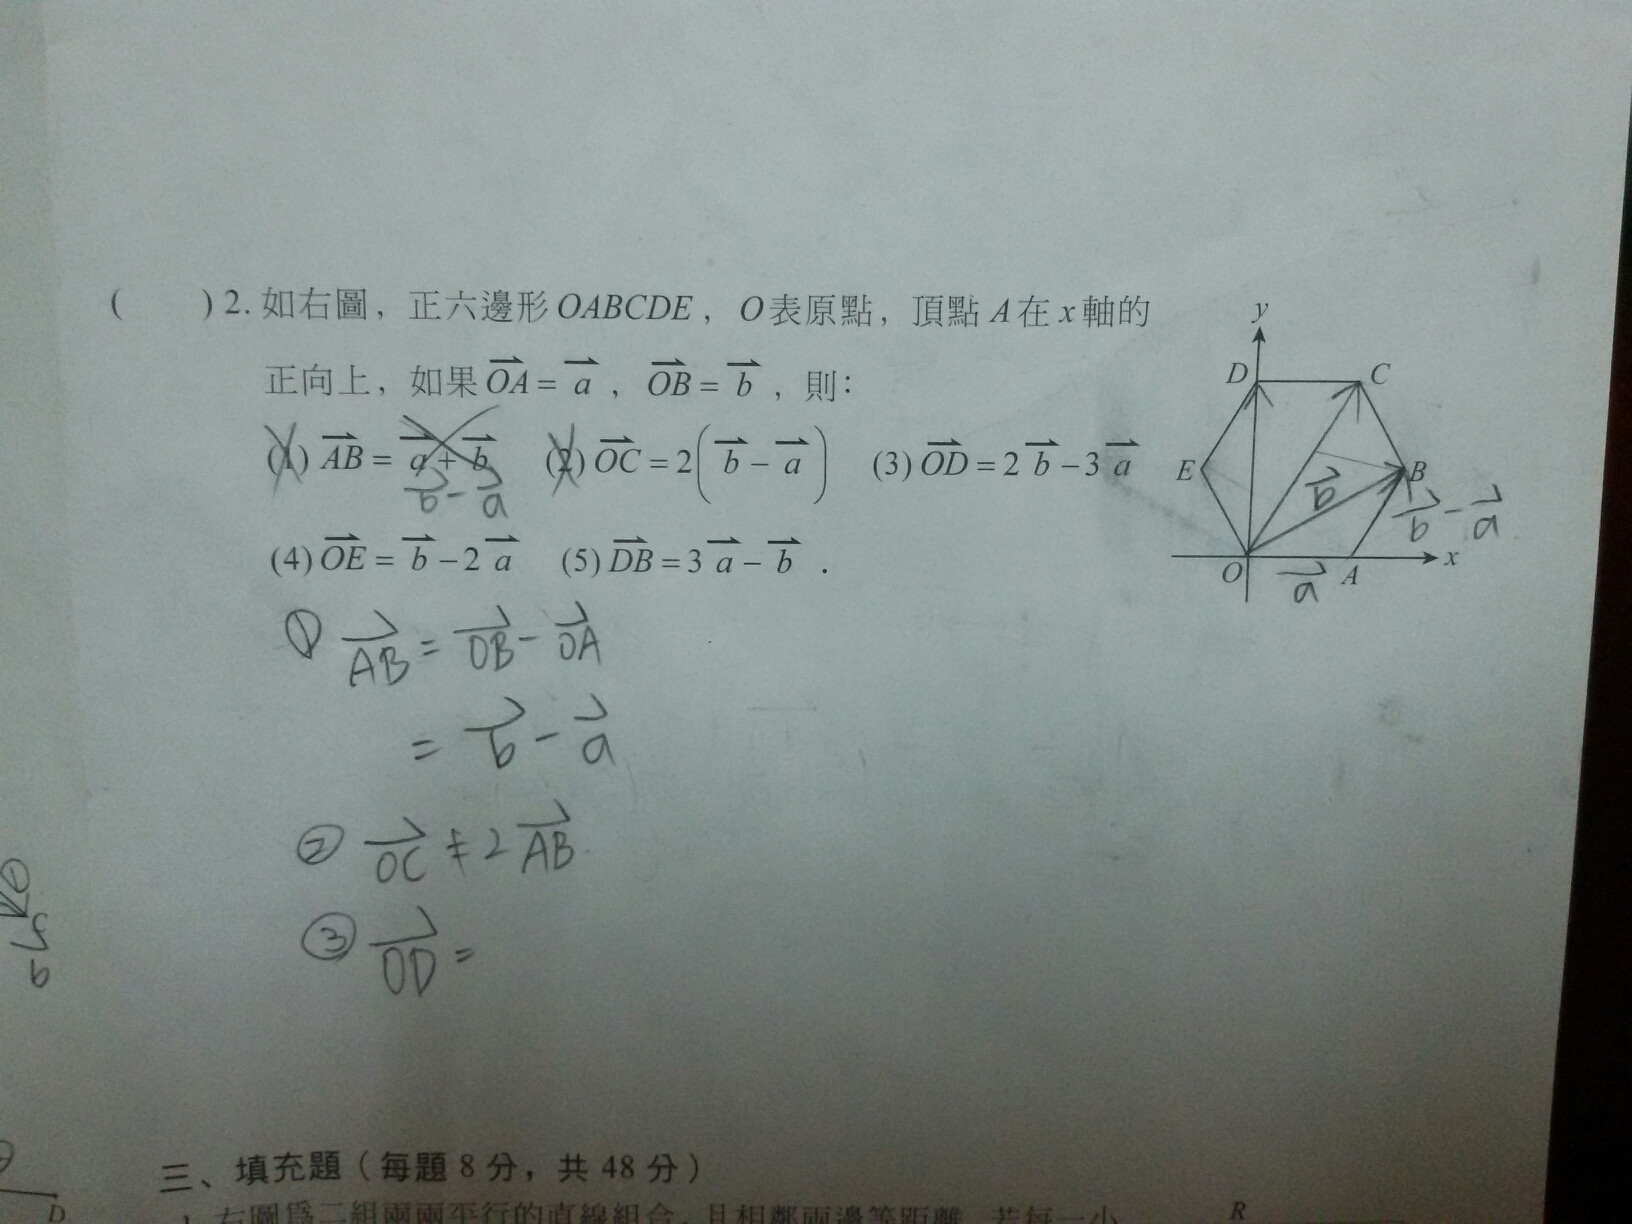 (　　) 2. 如右圖，正六邊形 OABCDE，O 表原點，頂點 A 在 x 軸的
正向上，如果 \overrightarrow{OA} = \overrightarrow{a}，\overrightarrow{OB} = \overrightarrow{b}，則：
(1) \overrightarrow{AB} = \overrightarrow{a} + \overrightarrow{b}　(2) \overrightarrow{OC} = 2(\overrightarrow{b} − \overrightarrow{a})　(3) \overrightarrow{OD} = 2\overrightarrow{b} − 3\overrightarrow{a}
\overrightarrow{b} − \overrightarrow{a}
(4) \overrightarrow{OE} = \overrightarrow{b} − 2\overrightarrow{a}　(5) \overrightarrow{DB} = 3\overrightarrow{a} − \overrightarrow{b}．
y
D C
E B
\overrightarrow{b}
\overrightarrow{b} − \overrightarrow{a}
O A x
\overrightarrow{a}
① \overrightarrow{AB} = \overrightarrow{OB} − \overrightarrow{OA}
= \overrightarrow{b} − \overrightarrow{a}
② \overrightarrow{OC} ≠ 2\overrightarrow{AB}
③ \overrightarrow{OD} =
三、填充題（每題 8 分，共 48 分）
1. 右圖為二組兩兩平行的直線組合，且相鄰兩邊等距離，若每一小
R
D